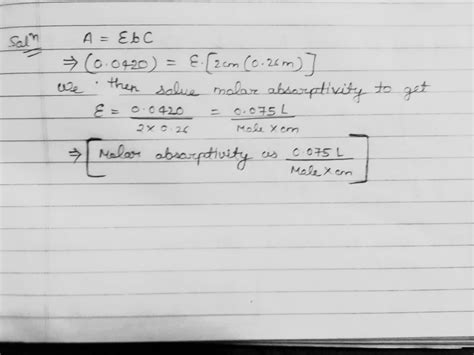 Solⁿ A = ƐbC
⇒ (0.0420) = Ɛ.[2cm(0.26m)]
We then solve molar absorptivity to get
Ɛ = 0.0420 / 2 x 0.26 = 0.075 L / Mole x cm
⇒ [Molar absorptivity as 0.075 L / Mole x cm]